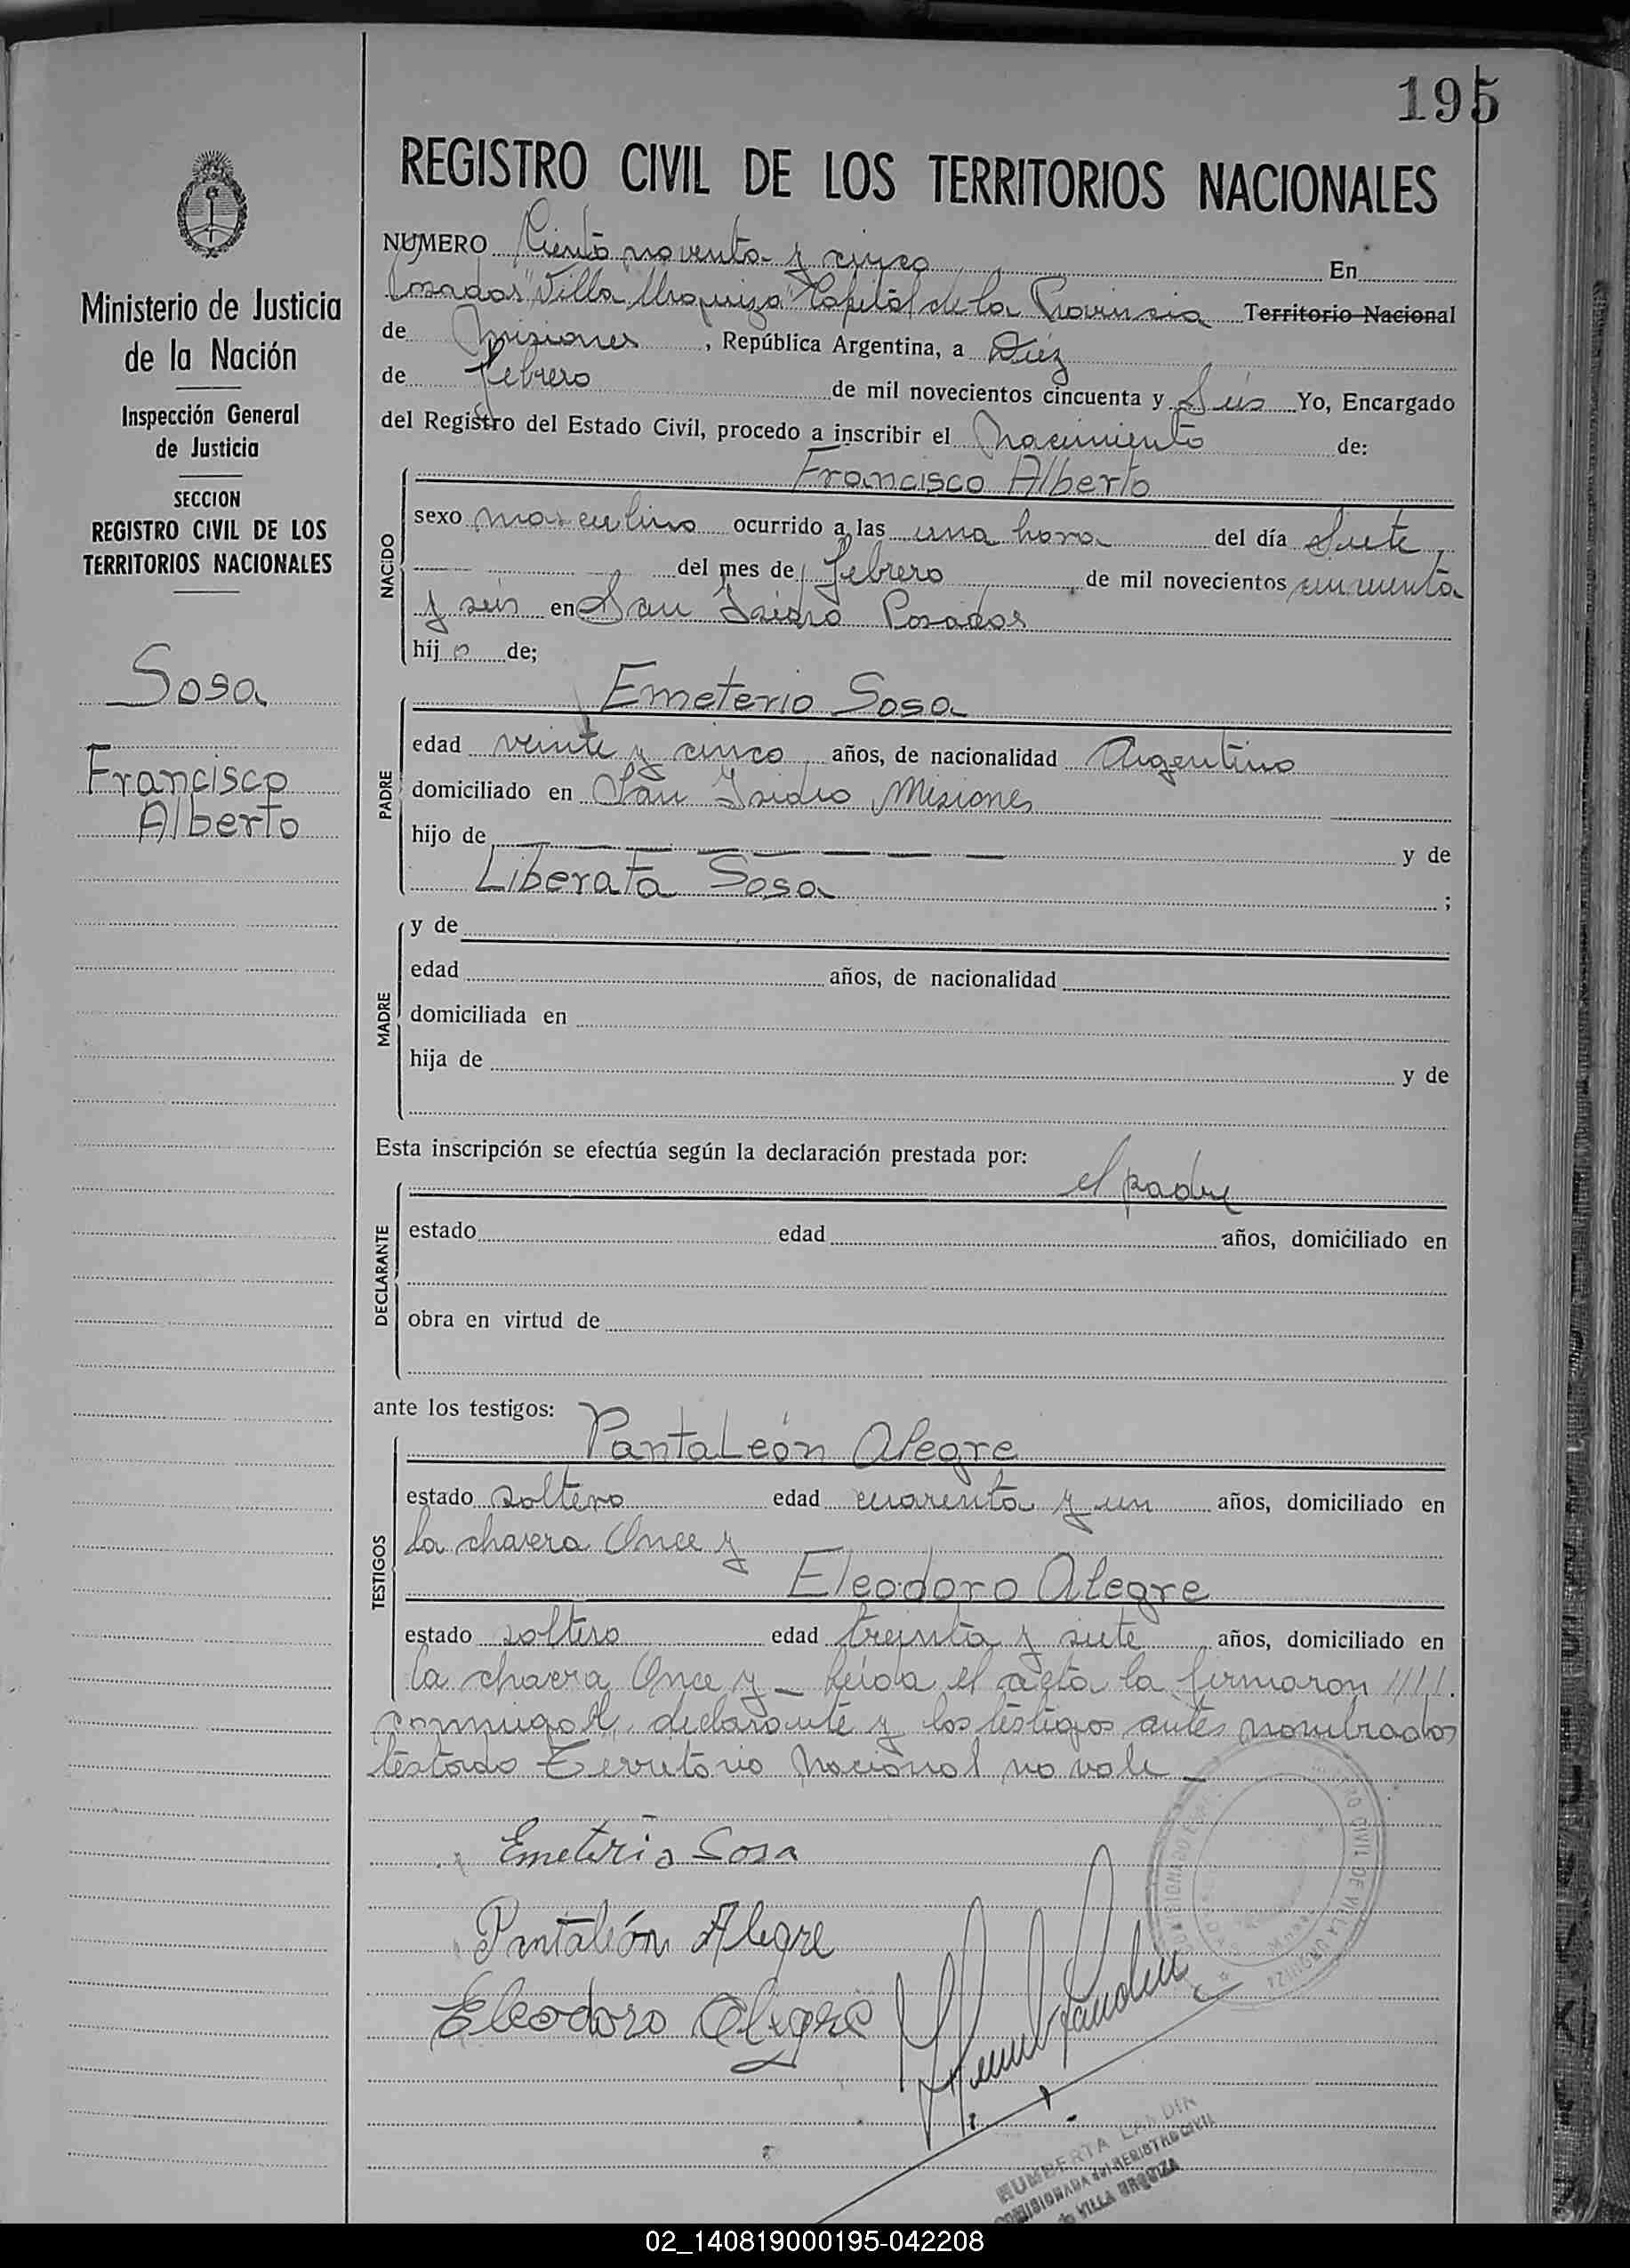 195
REGISTRO CIVIL DE LOS TERRITORIOS NACIONALES
Ministerio de Justicia
de la Nación
Inspección General
de Justicia
SECCION
REGISTRO CIVIL DE LOS
TERRITORIOS NACIONALES
Sosa
Francisco
Alberto
NUMERO Ciento noventa y cinco En
Posadas "Villa Urquiza" Capital de la Provincia Territorio Nacional
de Misiones, República Argentina, a Diez
de febrero de mil novecientos cincuenta y Seis Yo, Encargado
del Registro del Estado Civil, procedo a inscribir el Nacimiento de:
Francisco Alberto
NACIDO
sexo masculino ocurrido a las una hora del día Siete
del mes de febrero de mil novecientos cincuenta
y seis en San Isidro Posadas
hijo de;
Emeterio Sosa
PADRE
edad veinte y cinco años, de nacionalidad Argentino
domiciliado en San Isidro Misiones
hijo de — — — — — — y de
Liberata Sosa ;
MADRE
y de
edad años, de nacionalidad
domiciliada en
hija de y de
Esta inscripción se efectúa según la declaración prestada por:
el padre
DECLARANTE
estado edad años, domiciliado en
obra en virtud de
ante los testigos:
PantaLeón Alegre
TESTIGOS
estado soltero edad cuarenta y un años, domiciliado en
la chacra Once y
Eleodoro Alegre
estado soltero edad treinta y siete años, domiciliado en
la chacra Once y — Leída el acta la firmaron ////.
conmigo el declarante y los testigos antes nombrados
testado Territorio Nacional no vale —
Emeterio Sosa
Pantaleón Alegre
Eleodoro Alegre
CIVIL DE VILLA URQUIZA
HUMBERTA LANDIN
COMISIONADA del REGISTRO CIVIL
de VILLA URQUIZA
02_140819000195-042208